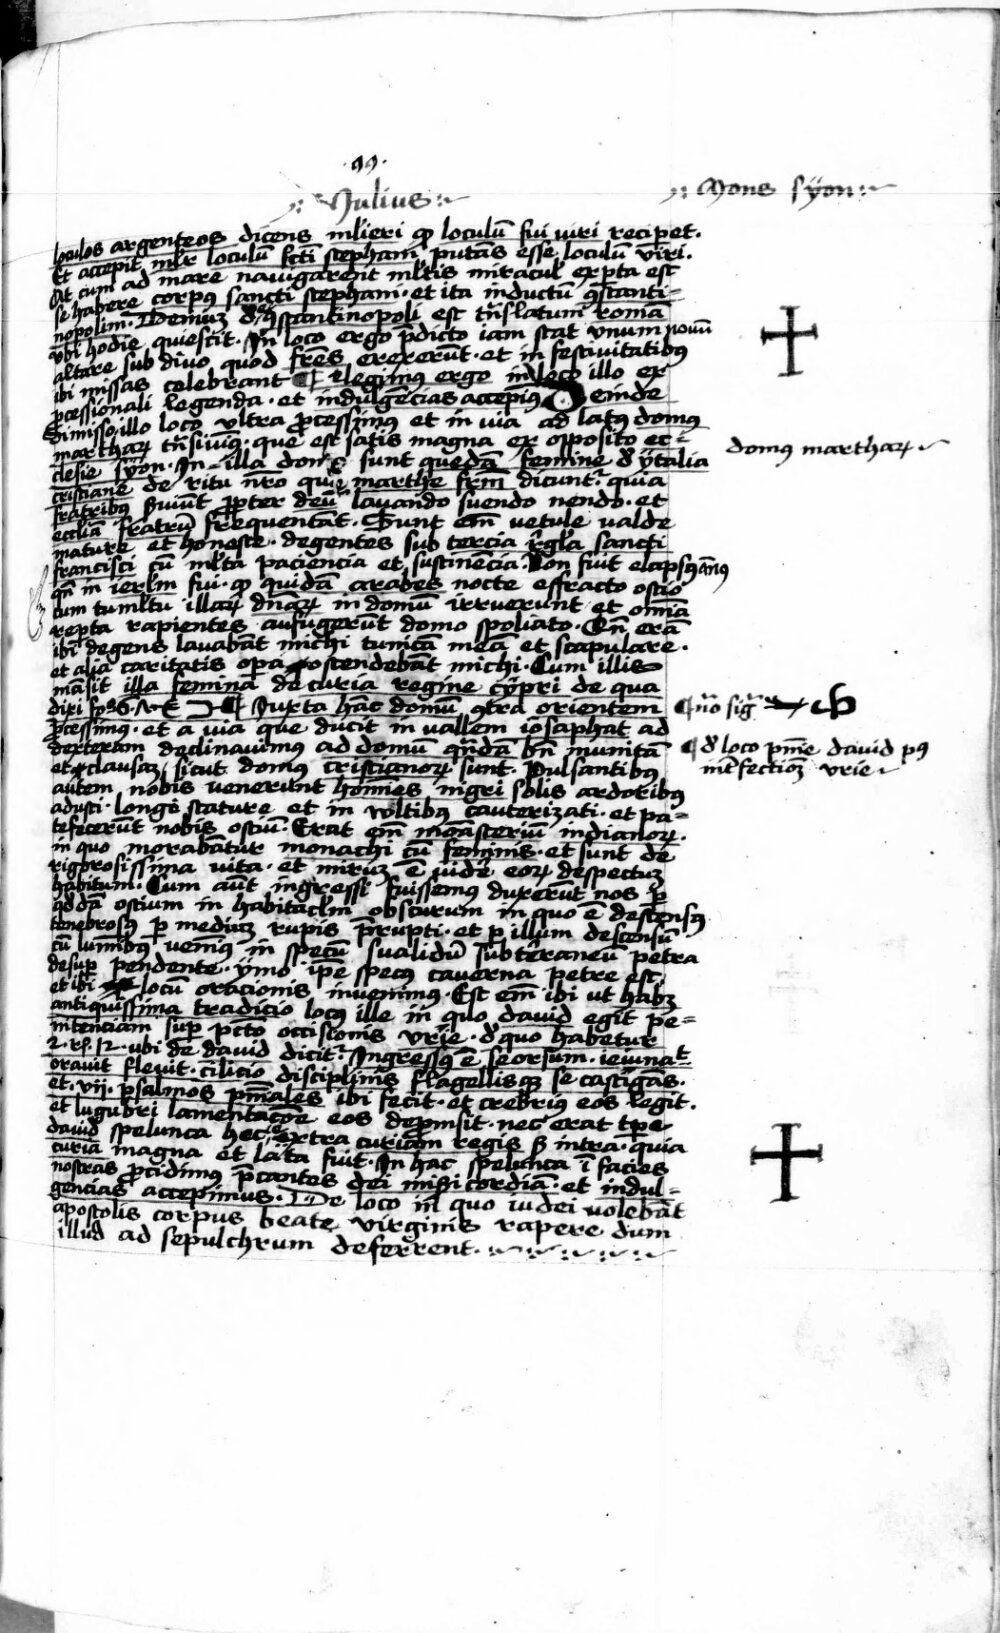 ·99·
Julius
Mons sÿon
loculos argenteos dicens mlieri qp loculū sui viri recipet.
Et accepit mlr loculū sc̄ti stephani putās esse loculū viri.
At cum ad mare nauigarent ml̄tis miracul' exp̄ta est
se habere corpus sancti stephani · et ita inductū ꝯstanti=
nopolim · Demuꝫ de ꝯstantinopoli est trāslatum romā
vbi hodie quiescit · In loco ergo p̄dicto iam stat vnum nouū
altare sub diuo quod fr̄es erexerūt · et in festiuitatibus
ibi missas celebrant ¶ Legimus ergo in loco illo ex
ꝓcessionali legenda · et indulgēcias accepimꝰ Deinde
Dimisso illo loco vltra ꝓcessimꝰ et in via ad latus domus
marthaꝝ trāsiuimꝰ · que est satis magna ex opposito ec=
clesie sÿon · In illa domo sunt quedā femine de ÿtalia
cristiane de ritu nr̄o que marthe fr̄m dicuntr̄ · quia
fratribus ẜuiūt ꝓpter deū lauando suendo nendo · et
eccliā fratrū frequentāt · Sunt em̄ vetule valde
mature et honeste · degentes sub tercia regl̄a sancti
francisci cū ml̄ta paciencia et sustinēcia · Non fuit elapsꝰ annus
qn̄ in ierl̄m fui · qp quidā arabes nocte effracto ostio
cum tumltu illaꝝ dn̄aꝝ in domū irruerunt et om̄ia
rep̄ta rapientes aufugerūt domo spoliata · Cū erā
ibi degens lauabāt michi tunicā meā et scapulare ·
et alia caritatis opa ostendebāt michi · Cum illis
māsit illa femina de curia regine cÿpri de qua
dixi fo · 36 · ¶ Juxta hāc domū ꝯtra orientem
ꝓcessimꝰ · et a via que ducit in vallem iosaphat ad
dexteram declinauimus ad domū quādā bn̄ munitā
et clausaꝫ sicut domus cristianoꝝ sunt · Pulsantibus
autem nobis venerunt homines nigri solis ardoribus
adusti · longe stature et in vultibus cauterizati · et pa=
tefecerūt nobis ostiū · Erat em̄ monasteriū indianoꝝ ·
in quo morabātur monachi cū feminis · et sunt de
rigorosissima vita · et miruꝫ ē videre eoꝝ despectuꝫ
habitum · Cum aūt ingressi fuissemus duxerūt nos per
qddā ostium in habitaclm obscurum in quo ē descensꝰ
tenebrosꝰ per mediuꝫ rupis p̄rupti · et p illum descensū
cū luminibꝰ venimꝰ in specū sualidū subterraneū petra
desup pendente · ÿmo ip̄e specus cauerna petre est
et ibi locū oracionis inuenimꝰ · Est em̄ ibi vt habꝫ
antiquissima tradicio locus ille in quo dauid egit pe=
nitenciam sup p̄cto occisionis vrie · de quo habetur
2 · re · 12 · vbi de dauid dicitr̄ · Ingressus ē seorsum · ieiunat
orauit fleuit · cilicio disciplinis flagellisqꝫ se castigans ·
et · vij · psalmos pn̄iales ibi fecit · et crebrius eos legit ·
et lugubri lamentacōe eos deprompsit · nec erat tp̄e
dauid spelunca hec extra curiam regis sꝫ intra · quia
curia magna et lata fuit · In hac spelunca ī facies
nostras ꝓcidimus p̄cantes dei misericordiā · et indul=
gencias accepimus · De loco in quo iudei volebāt
apostolis corpus beate virginis rapere dum
illud ad sepulchrum deferrent ·
domus marthaꝝ
¶ de loco pn̄ie dauid pꝰ
int̄fectioꝫ vrie